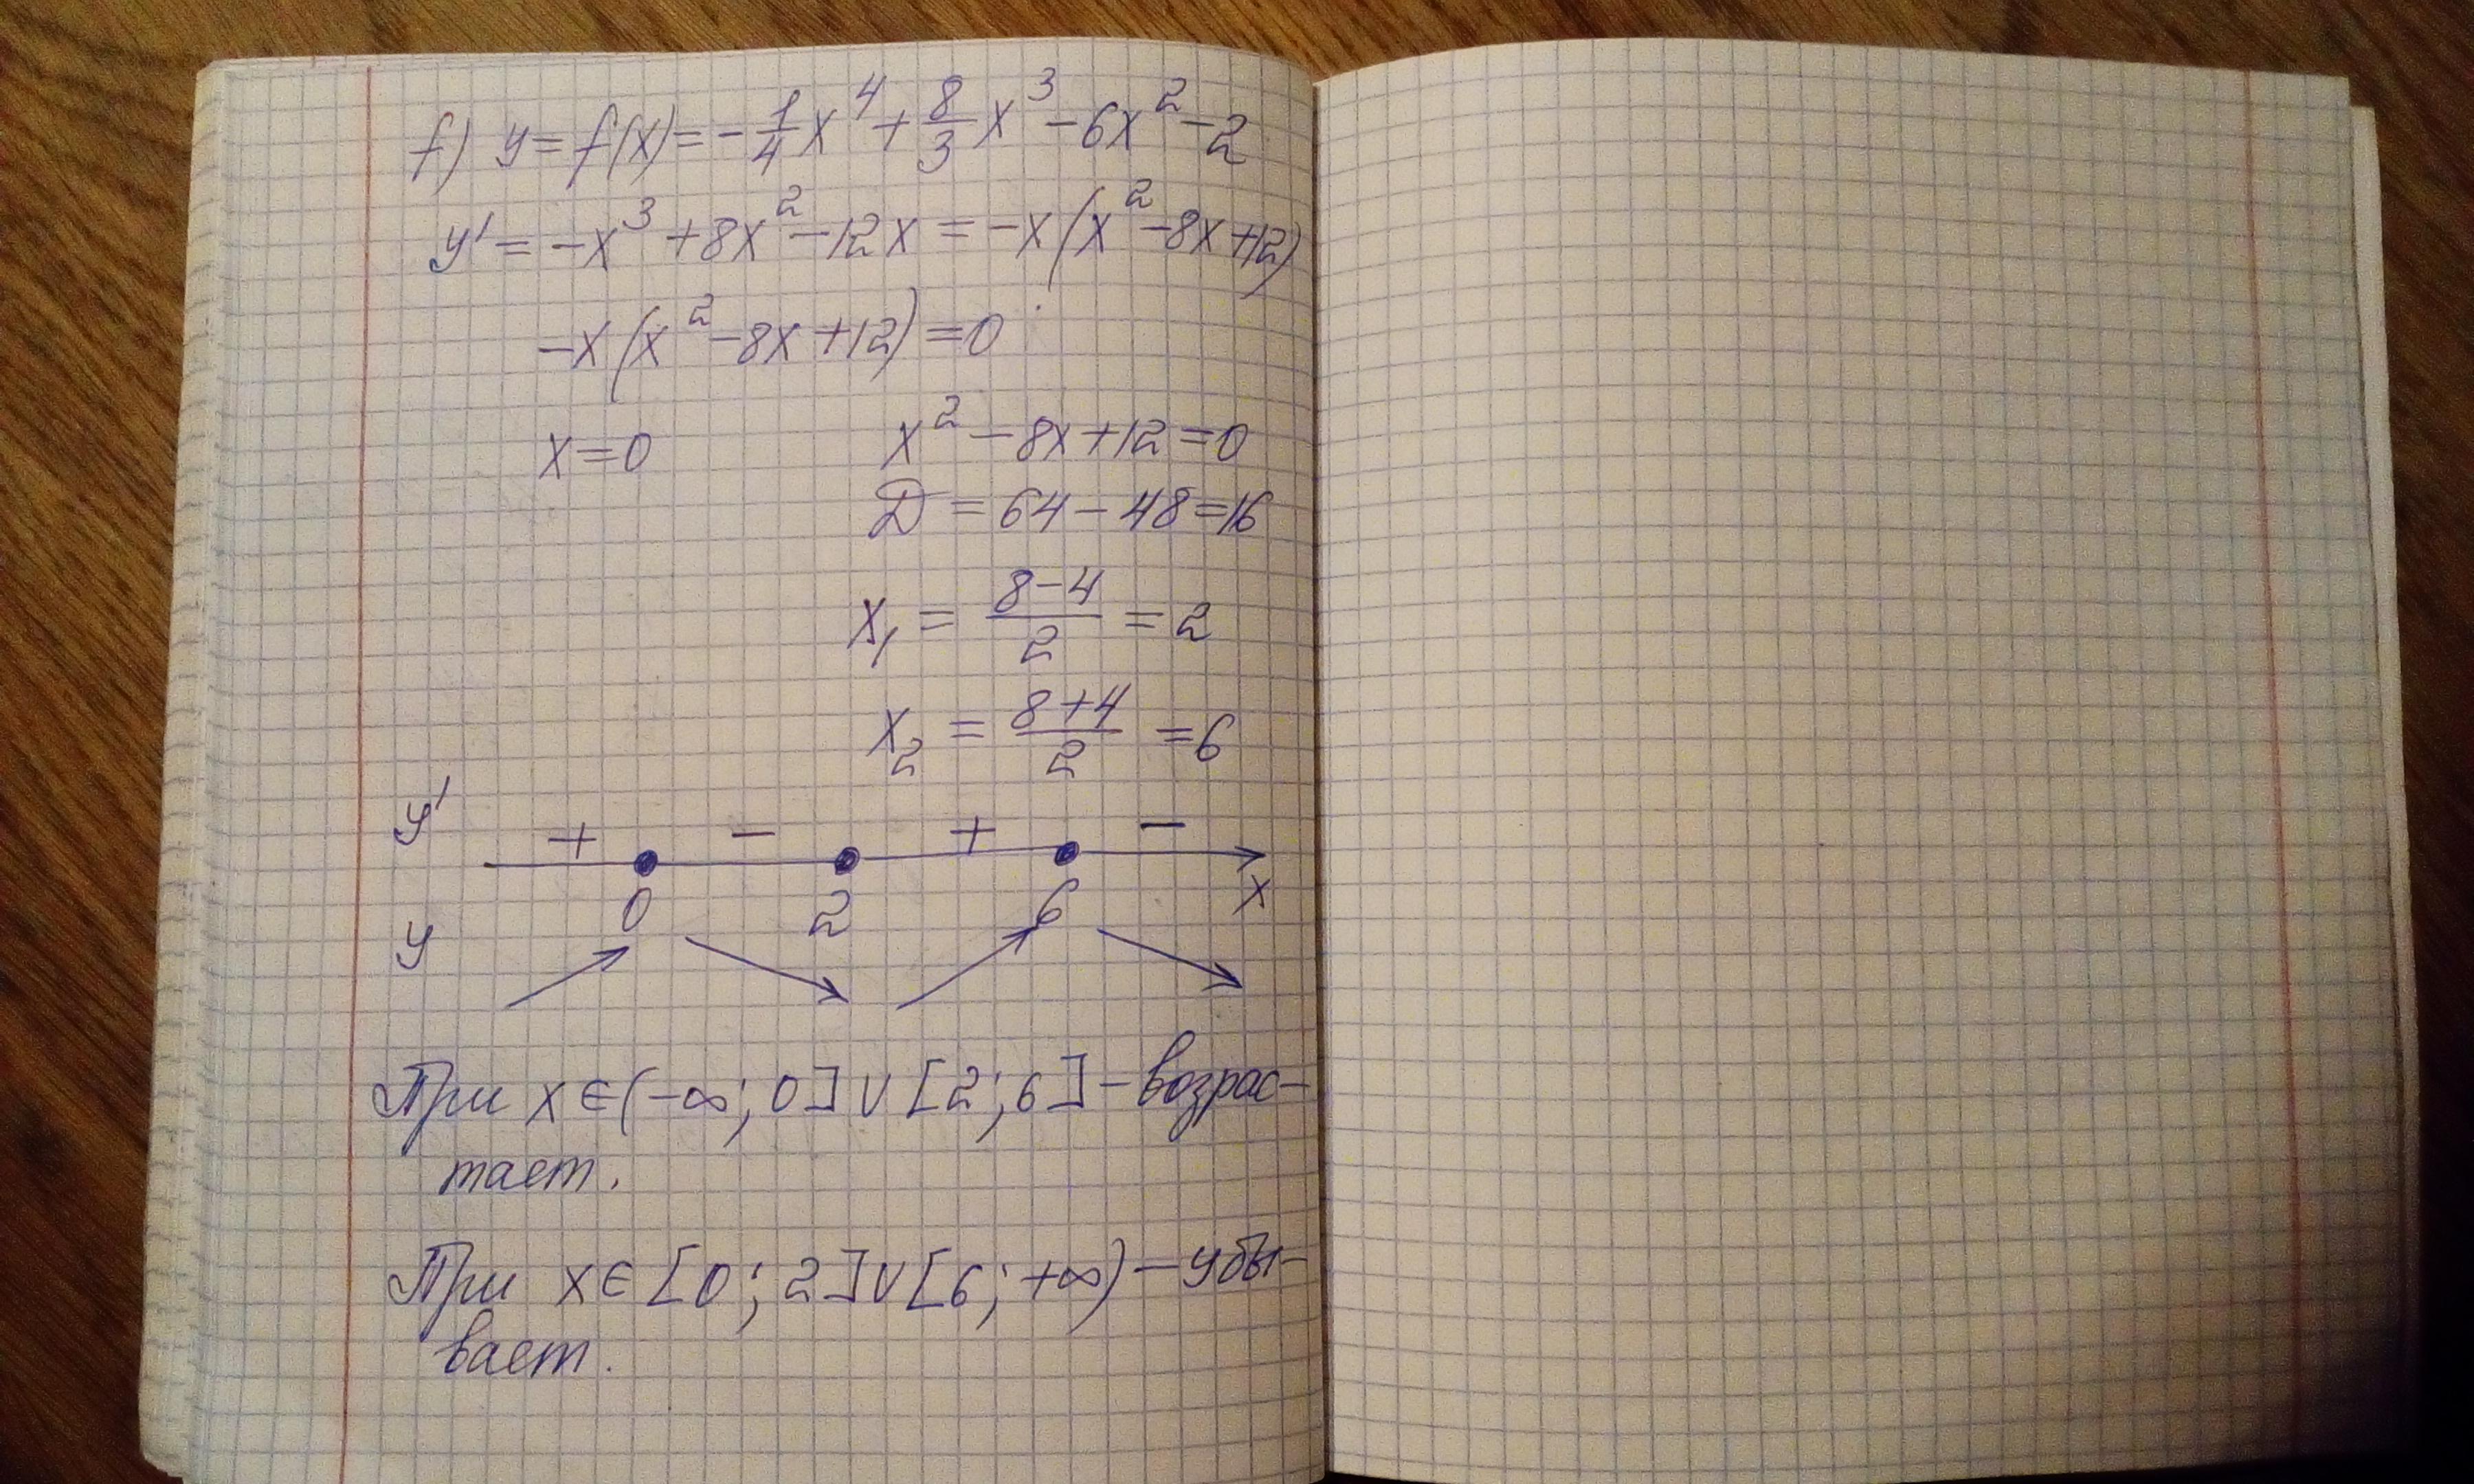 f) y = f(x) = -1/4 x^4 + 8/3 x^3 - 6x^2 - 2
y' = -x^3 + 8x^2 - 12x = -x(x^2 - 8x + 12)
-x(x^2 - 8x + 12) = 0
x = 0    x^2 - 8x + 12 = 0
D = 64 - 48 = 16
x_1 = (8 - 4)/2 = 2
x_2 = (8 + 4)/2 = 6
y' + - + -
0 2 6 x
y
При x ∈ (-∞; 0] ∪ [2; 6] - возрас-
тает.
При x ∈ [0; 2] ∪ [6; +∞) - убы-
вает.